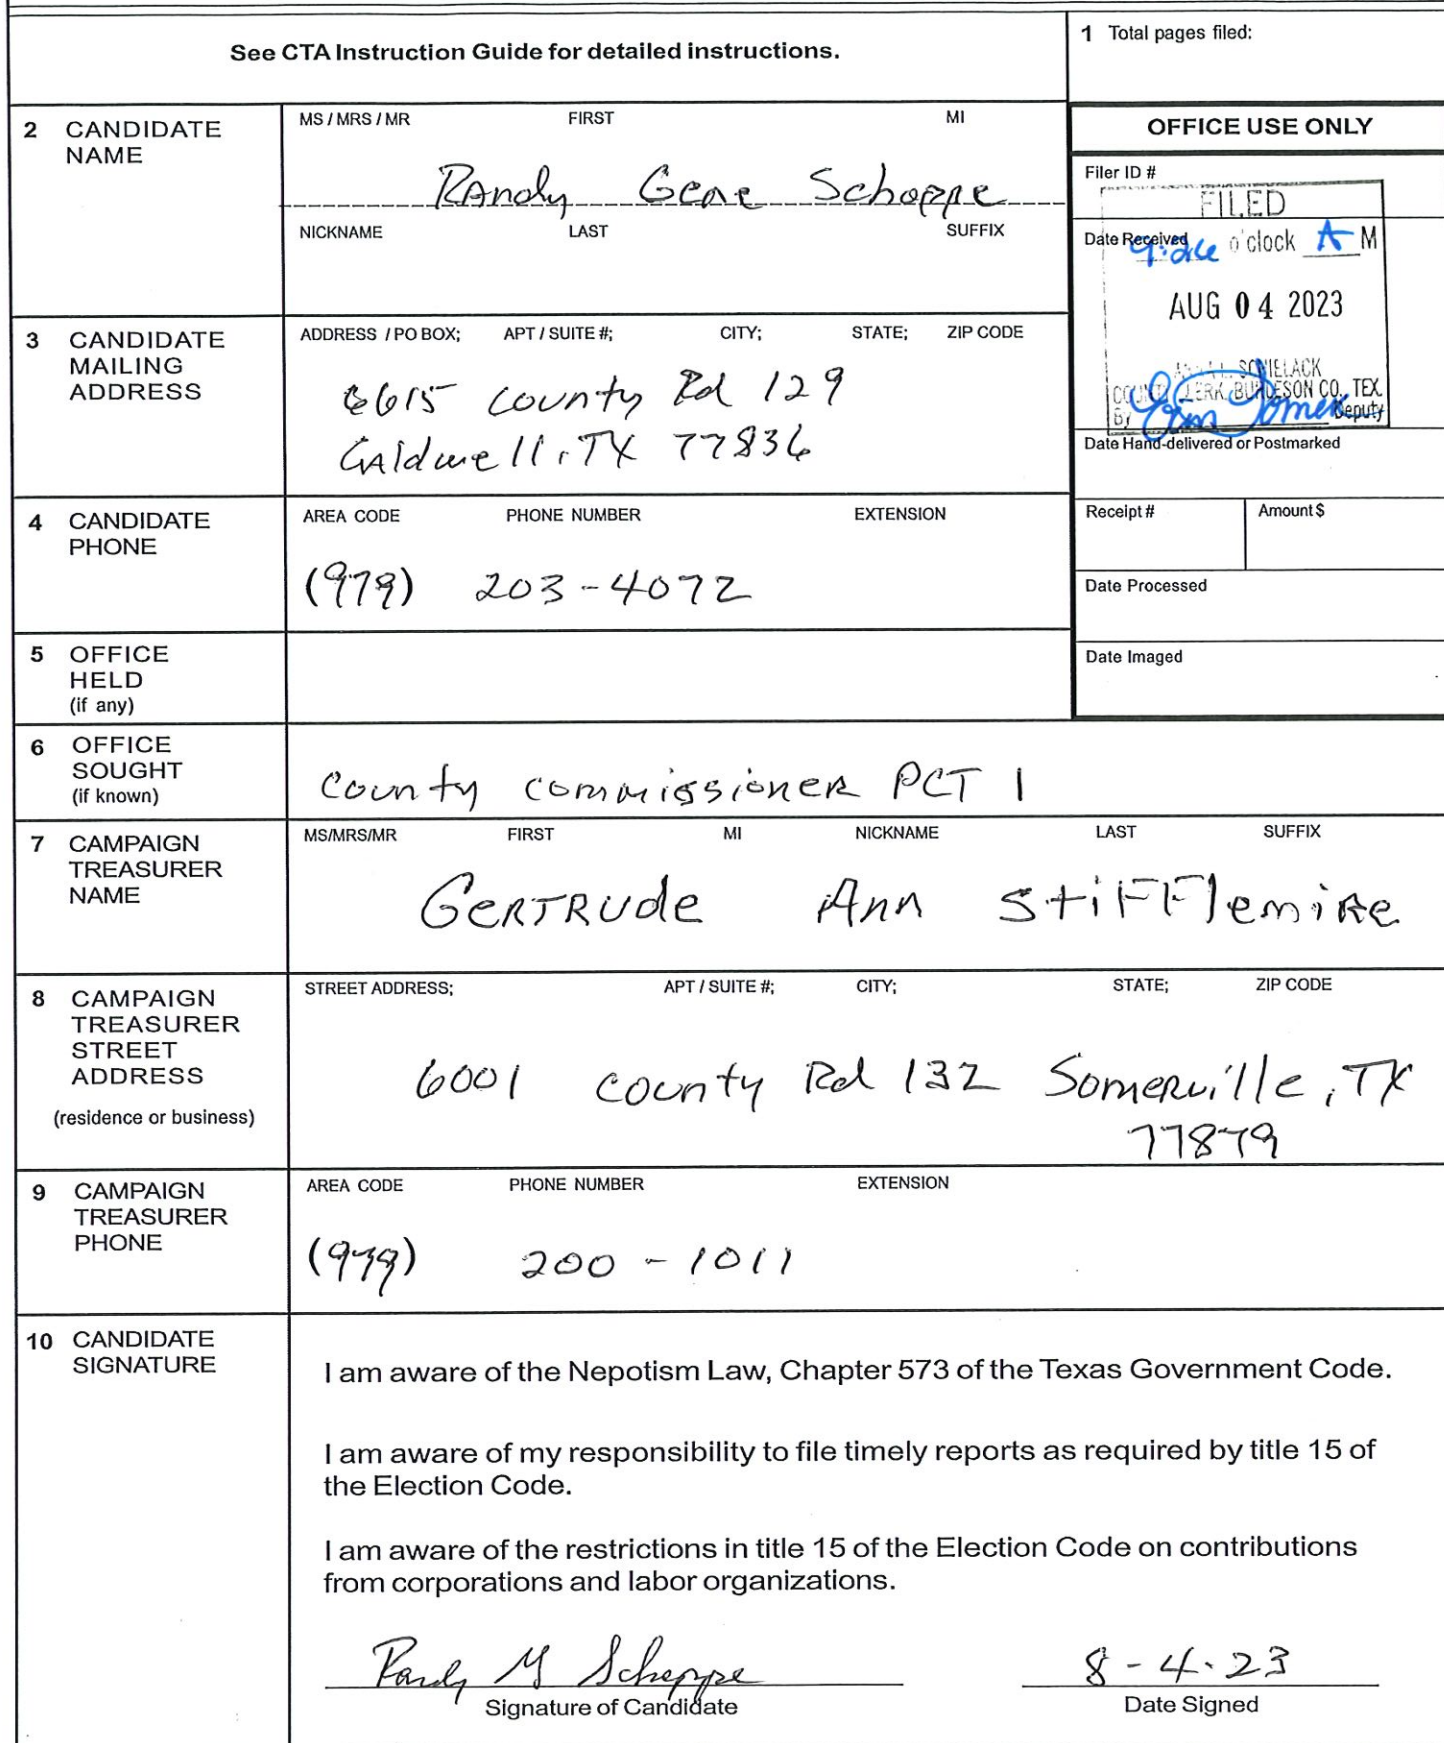 See CTA Instruction Guide for detailed instructions.
1 Total pages filed:
2 CANDIDATE NAME
MS / MRS / MR FIRST MI
Randy Gene Schoppe
NICKNAME LAST SUFFIX
OFFICE USE ONLY
Filer ID #
FILED
Date Received
o'clock A M
AUG 04 2023
COUNTY CLERK, BURLESON CO., TEX.
By Deputy
Date Hand-delivered or Postmarked
Receipt # Amount $
Date Processed
Date Imaged
3 CANDIDATE MAILING ADDRESS
ADDRESS / PO BOX; APT / SUITE #; CITY; STATE; ZIP CODE
6615 county Rd 129
Caldwell, TX 77836
4 CANDIDATE PHONE
AREA CODE PHONE NUMBER EXTENSION
(979) 203-4072
5 OFFICE HELD (if any)
6 OFFICE SOUGHT (if known)
County commissioner PCT 1
7 CAMPAIGN TREASURER NAME
MS/MRS/MR FIRST MI NICKNAME LAST SUFFIX
Gertrude Ann Stifflemire
8 CAMPAIGN TREASURER STREET ADDRESS (residence or business)
STREET ADDRESS; APT / SUITE #; CITY; STATE; ZIP CODE
6001 county Rd 132 Somerville, TX
77879
9 CAMPAIGN TREASURER PHONE
AREA CODE PHONE NUMBER EXTENSION
(979) 200-1011
10 CANDIDATE SIGNATURE
I am aware of the Nepotism Law, Chapter 573 of the Texas Government Code.
I am aware of my responsibility to file timely reports as required by title 15 of
the Election Code.
I am aware of the restrictions in title 15 of the Election Code on contributions
from corporations and labor organizations.
Randy G Schoppe 8-4-23
Signature of Candidate Date Signed